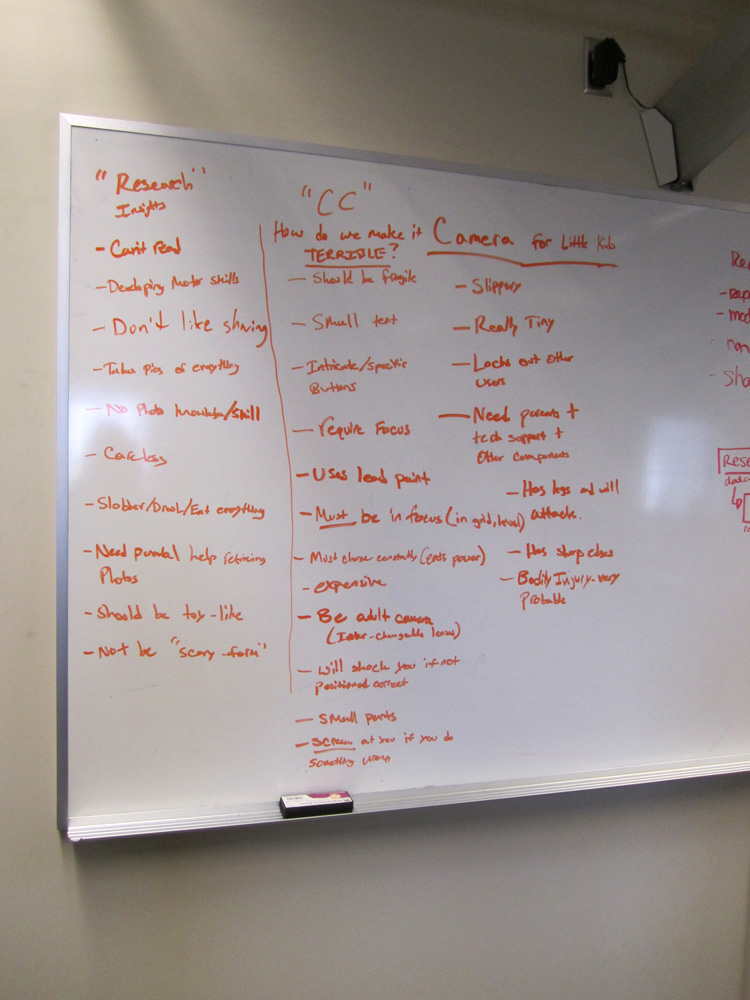 "Research"
Insights
- Can't read
- Developing Motor skills
- Don't like sharing
- Takes pics of everything
- No Photo knowledge/skill
- Careless
- Slobber/Drool/Eat everything
- Need parental help retrieving
Photos
- Should be toy-like
- Not be "scary-form"
"CC"
How do we make it
TERRIBLE?
Camera for Little Kids
- Should be fragile
- Small text
- Intricate/specific
Buttons
- require Focus
- Uses lead paint
- Must be in focus (in grid, level)
- Must charge constantly (eats power)
- expensive
- Be adult camera
(Inter-changeable lenses)
- Will shock you if not
positioned correct
- small parts
- scream at you if you do
something wrong
- Slippery
- Really Tiny
- Locks out other
users
- Need parents +
tech support +
Other components
- Has legs and will
attack.
- Has sharp edges
- Bodily Injury-very
Probable